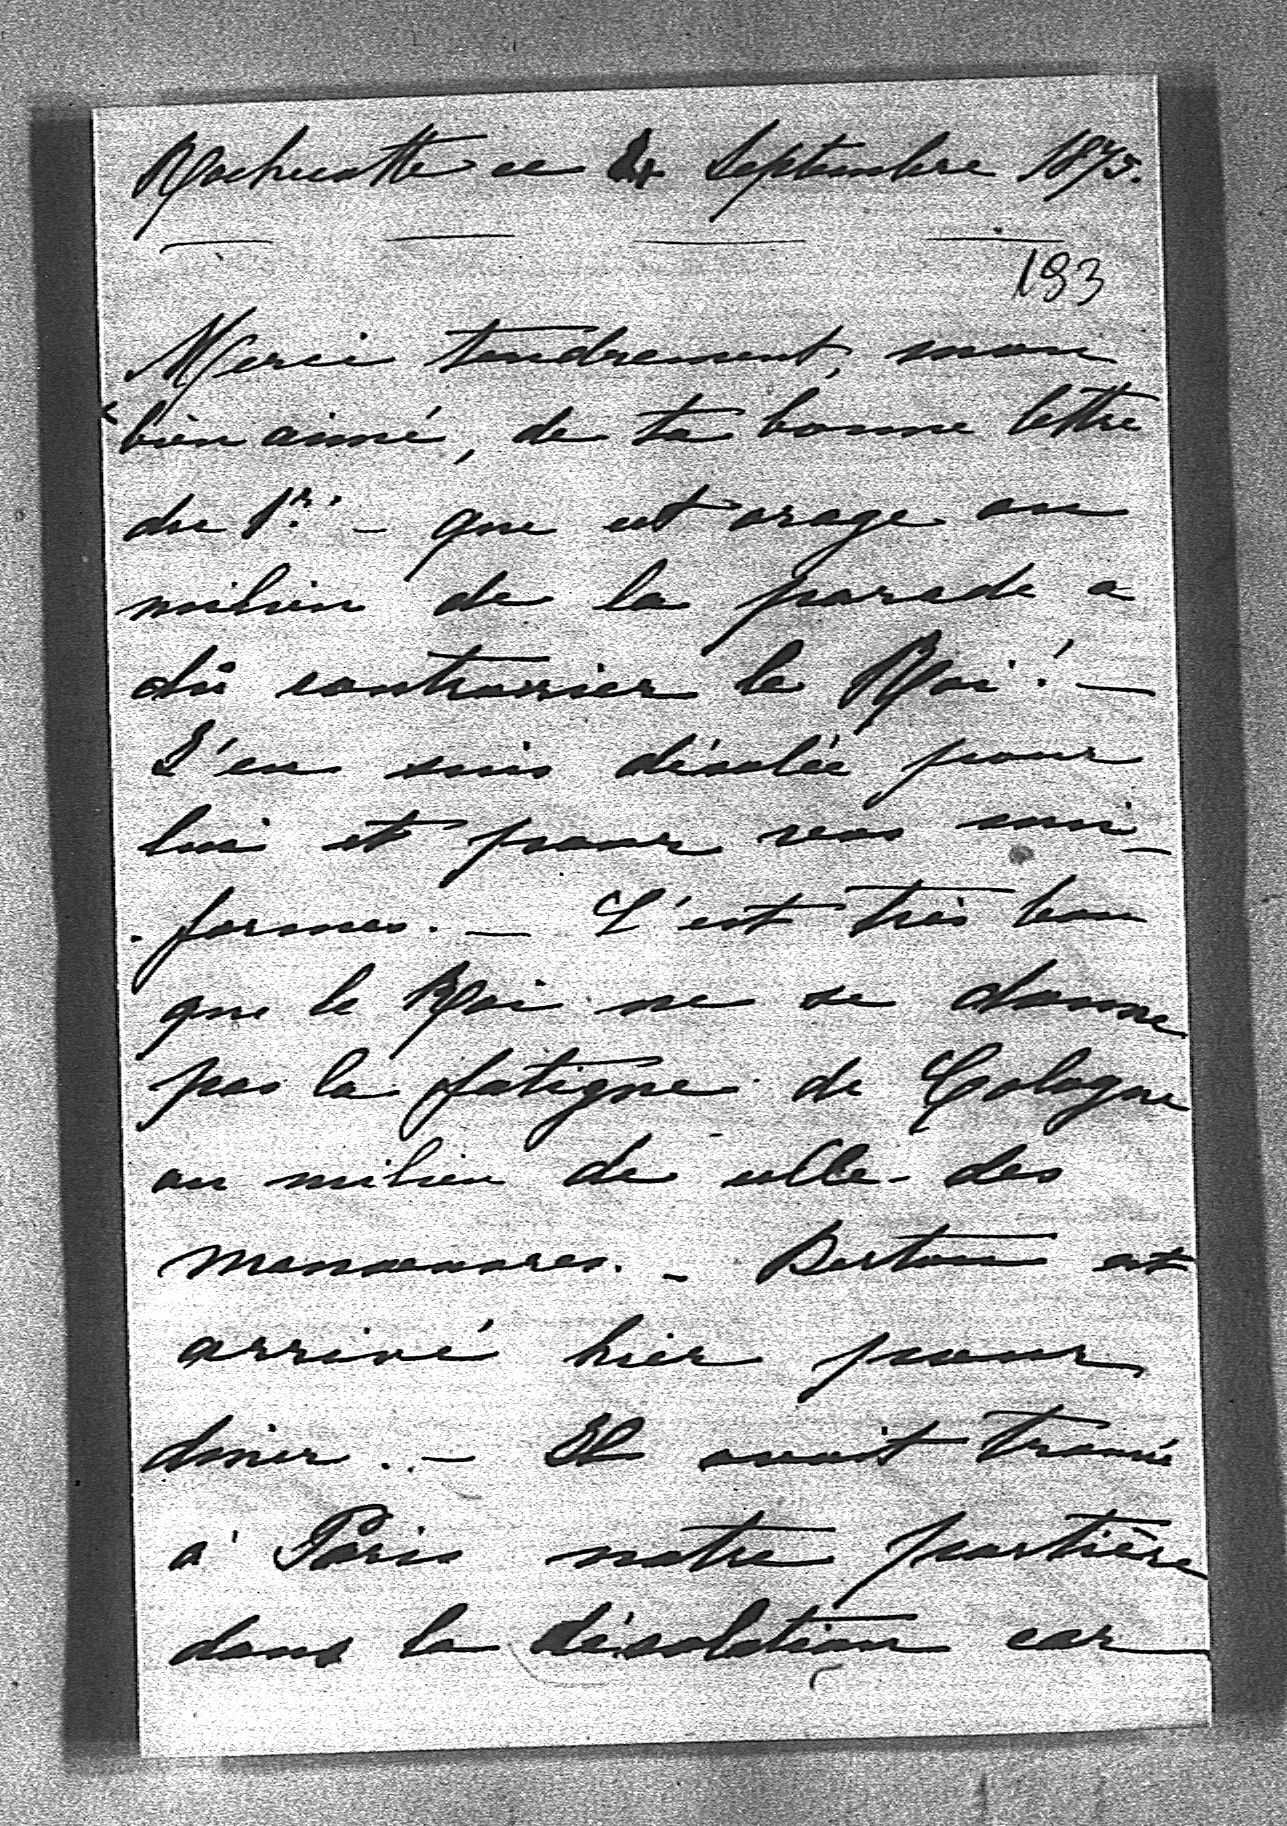 Rochecotte ce 4 Septembre 1875.
193
Merci tendrement, mon
bien aimé, de ta bonne lettre
du 1er. – que cet orage au
milieu de la parade a
dû contrarier le Roi! –
J'en suis désolée pour
lui et pour vos uni-
formes. – C'est très bon
que le Roi ne se donne
pas la fatigue de Cologne
au milieu de celle des
manoeuvres. – Bertou est
arrivé hier pour
diner. – Il avait trouvé
à Paris notre portière
dans la désolation car